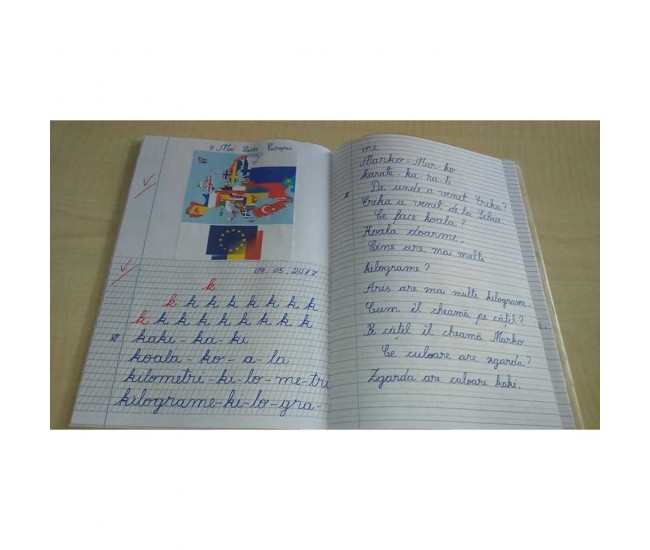 9 Mai Ziua Europei
09.05.2017
k
k k k k k k k k
k k k k k k k k k
kaki - ka - ki
koala - ko - a - la
kilometri - ki - lo - me - tri
kilograme - ki - lo - gra -
me
Marko - Mar - ko
karate - ka - ra - te
De unde a venit Erika?
Erika a venit de la Sibiu.
Ce face koala?
Koala doarme.
Cine are mai multe
kilograme?
Aris are mai multe kilograme.
Cum îl cheamă pe cățel?
Pe cățel îl cheamă Marko
Ce culoare are zgarda?
Zgarda are culoare kaki.